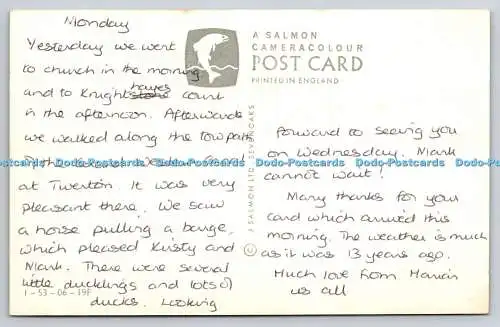 Monday
Yesterday we went
to church in the morning
and to Knightshayes court
in the afternoon. Afterwards
we walked along the towpath
at Tiverton. It was very
pleasant there. We saw
a horse pulling a barge,
which pleased Kirsty and
Mark. There were several
little ducklings and lots of
ducks. Looking
1-53-06-19F
A SALMON
CAMERACOLOUR
POST CARD
PRINTED IN ENGLAND
J SALMON LTD SEVENOAKS
forward to seeing you
on Wednesday. Mark
cannot wait!
Many thanks for your
card which arrived this
morning. The weather is much
as it was 13 years ago.
Much love from
us all
Dodo-Postcards Dodo-Postcards Dodo-Postcards Dodo-Postcards Dodo-Postcards